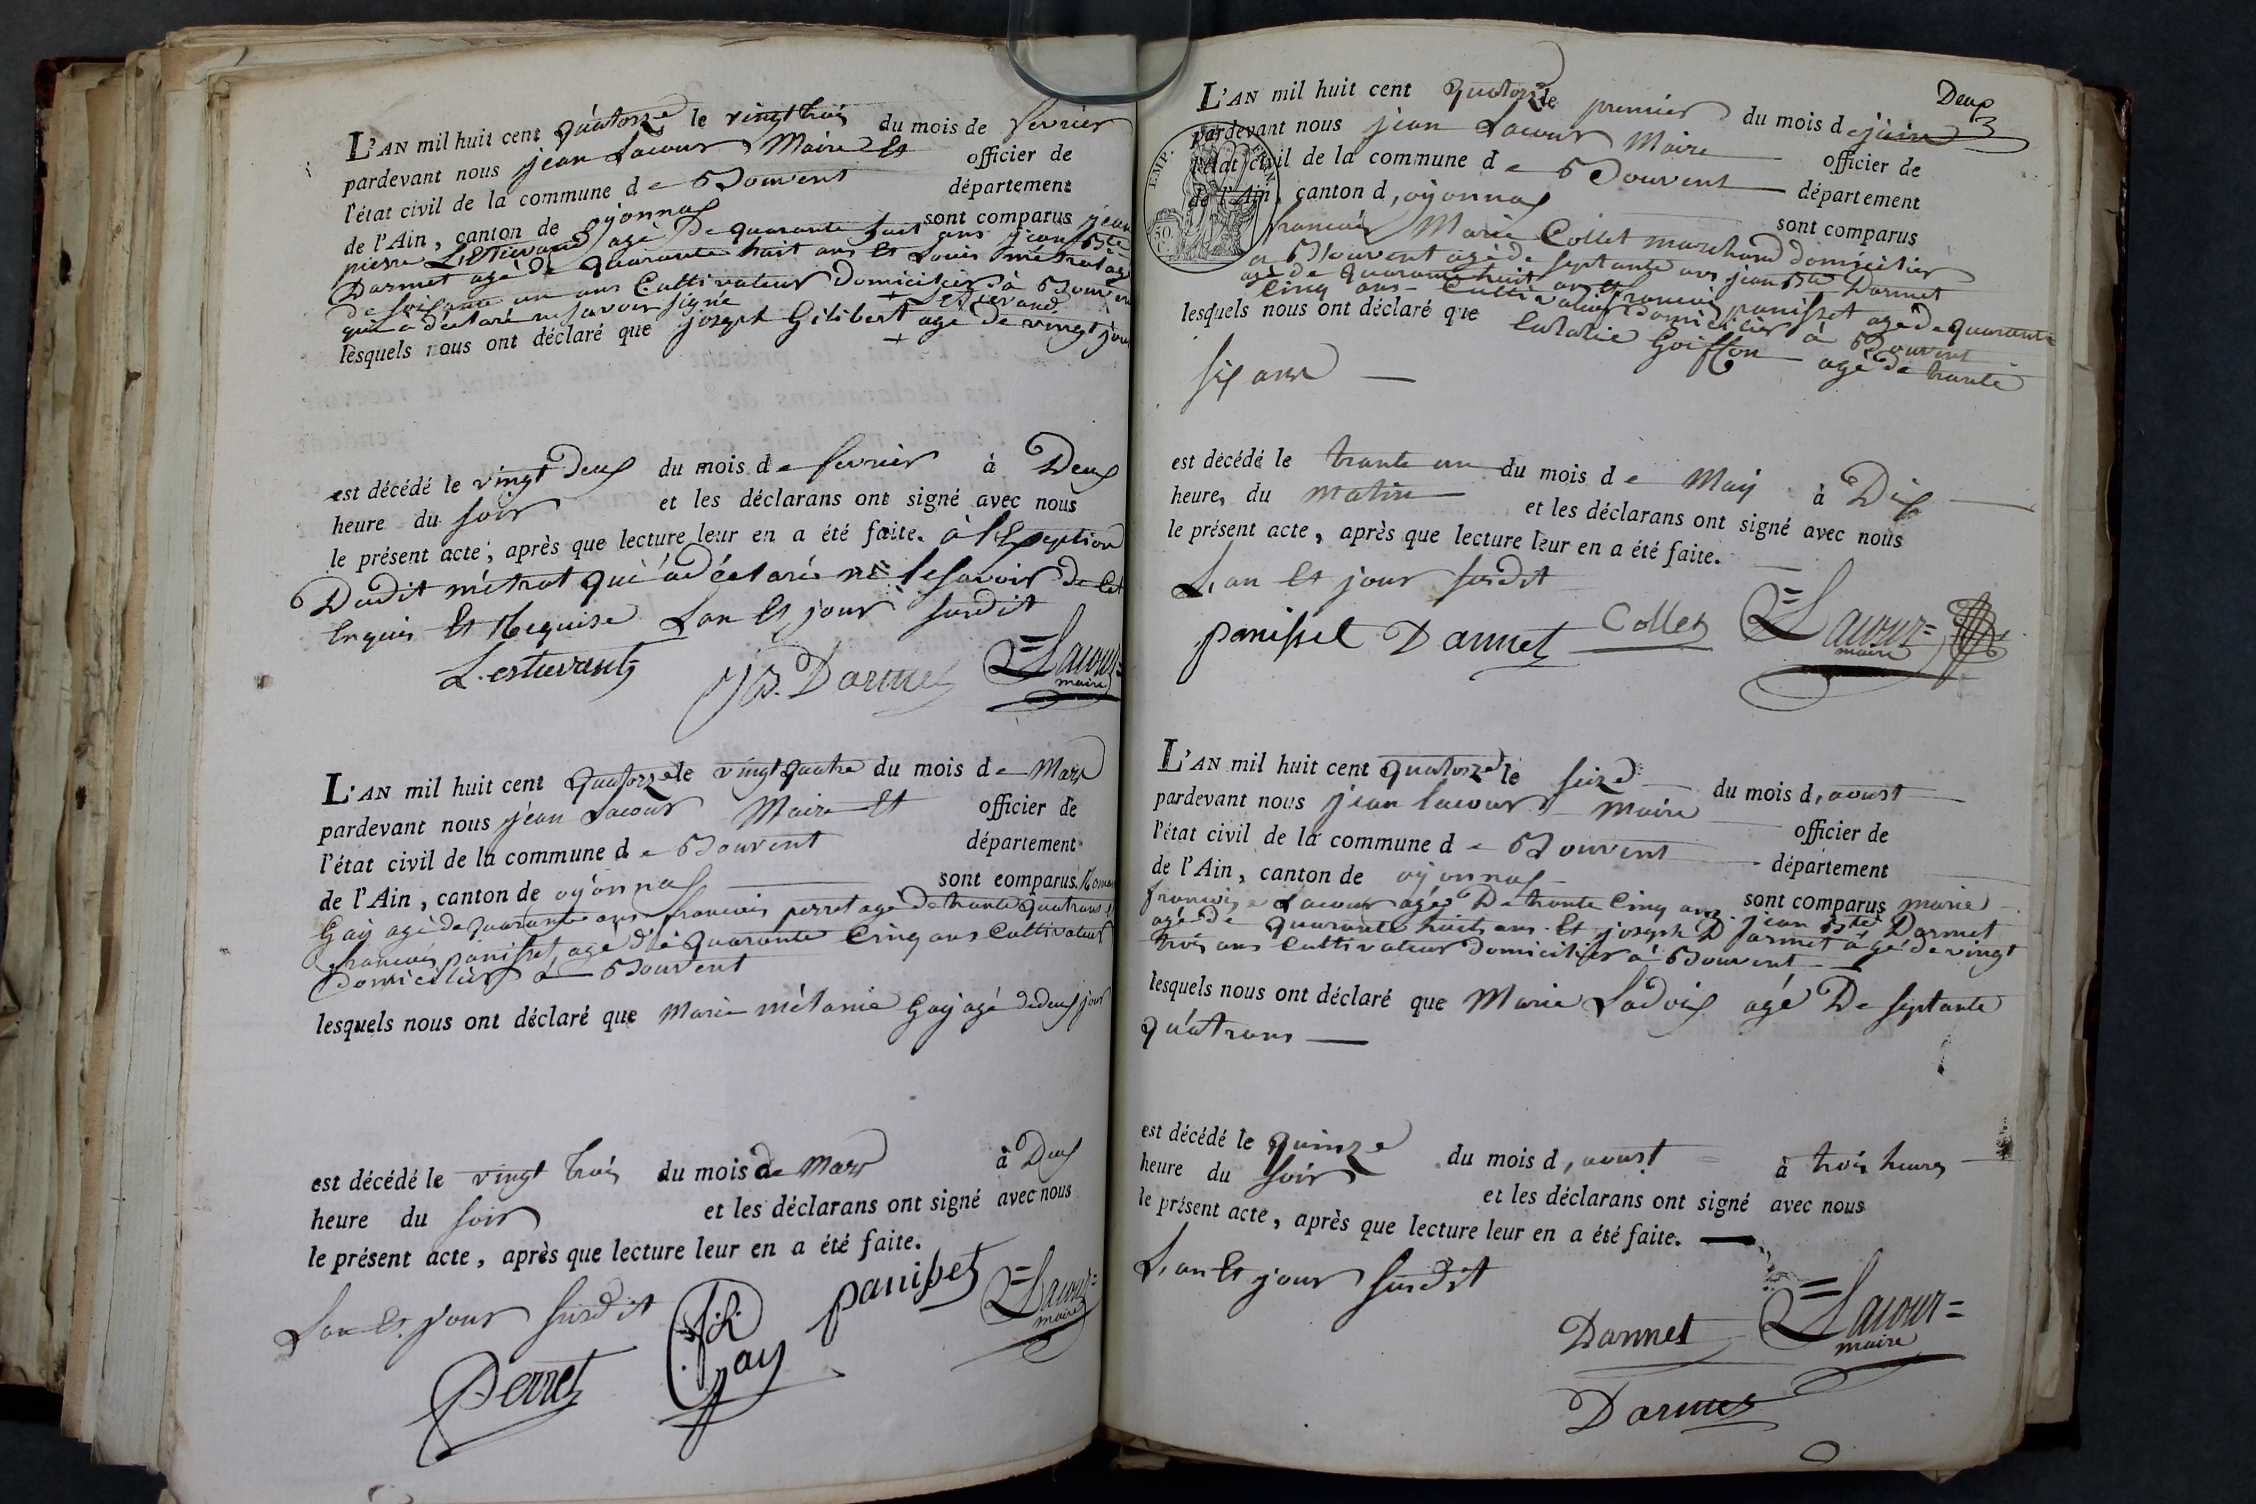 L'AN mil huit cent quatorze le vingt trois du mois de fevrier
pardevant nous jean Lacour Maire Et officier de
l'état civil de la commune de Bouvent département
de l'Ain, canton de oyonnax sont comparus jean
pierre Lestievant agé de quarante huit ans jean Bte
Darmet agé de quarante huit ans Et Louis métrat agé
de soixante un ans Cultivateur domicilier à Bouvent
qui a déclaré ne savoir signé
lesquels nous ont déclaré que joseph Gilibert agé de vingt jour
est décédé le vingt deux du mois de fevrier à Deux
heure du soir et les déclarans ont signé avec nous
le présent acte, après que lecture leur en a été faite. à l'Exeption
Dudit métrat qui a déclaré ne le savoir de cet
Enquis Et Requise Lan Et jour susdit
L. estievant JB. Darmet Lacour maire
L'AN mil huit cent quatorze le vingt quatre du mois de Mars
pardevant nous jean Lacour Maire Et officier de
l'état civil de la commune de Bouvent département
de l'Ain, canton de oyonnax sont comparus Roman
Gay agé de quarante ans francois perret agé de trante quatrans Et
francois panisset, agé de quarante Cinq ans Cultivateur
Domicilier à Bouvent
lesquels nous ont déclaré que Marie mélanie Gay agé de deux jour
est décédé le vingt trois du mois de Mars à Deux
heure du soir et les déclarans ont signé avec nous
le présent acte, après que lecture leur en a été faite.
Lan Et jour susdit
Perret Gay panisset Lacour maire
Deux
3
L'AN mil huit cent quatorze le premier du mois de juin
pardevant nous jean Lacour Maire officier de
l'état civil de la commune de Bouvent département
de l'Ain, canton d'oyonnax sont comparus
francois Marie Collet marchand domicilier
a Bouvent agé de septante ans jean Bte Darmet
agé de quarante huit ans Et francois panisset agé de quarante
Cinq ans Cultivateur Domicilier à Bouvent
lesquels nous ont déclaré que Eulalie Goiffon agé de trante
six ans
est décédé le trante un du mois de May à Dix
heure, du matin et les déclarans ont signé avec nous
le présent acte, après que lecture leur en a été faite.
L'an Et jour susdit
panisset Darmet Collet Lacour maire
L'AN mil huit cent quatorze le seize du mois d, aoust
pardevant nous jean lacour maire officier de
l'état civil de la commune de Bouvent département
de l'Ain, canton de oyonnax sont comparus marie
françoise Lacour agés De trante Cinq ans. jean Bte Darmet
agé de quarante huit ans Et joseph Darmet agé de vingt
trois ans Cultivateur Domicilier à Bouvent
lesquels nous ont déclaré que Marie Ladoix agé De septante
quatrans
est décédé le quinze du mois d, aoust à trois heures
heure du soir et les déclarans ont signé avec nous
le présent acte, après que lecture leur en a été faite.
L'an Et jour susdit
Darmet Lacour maire
Darmet